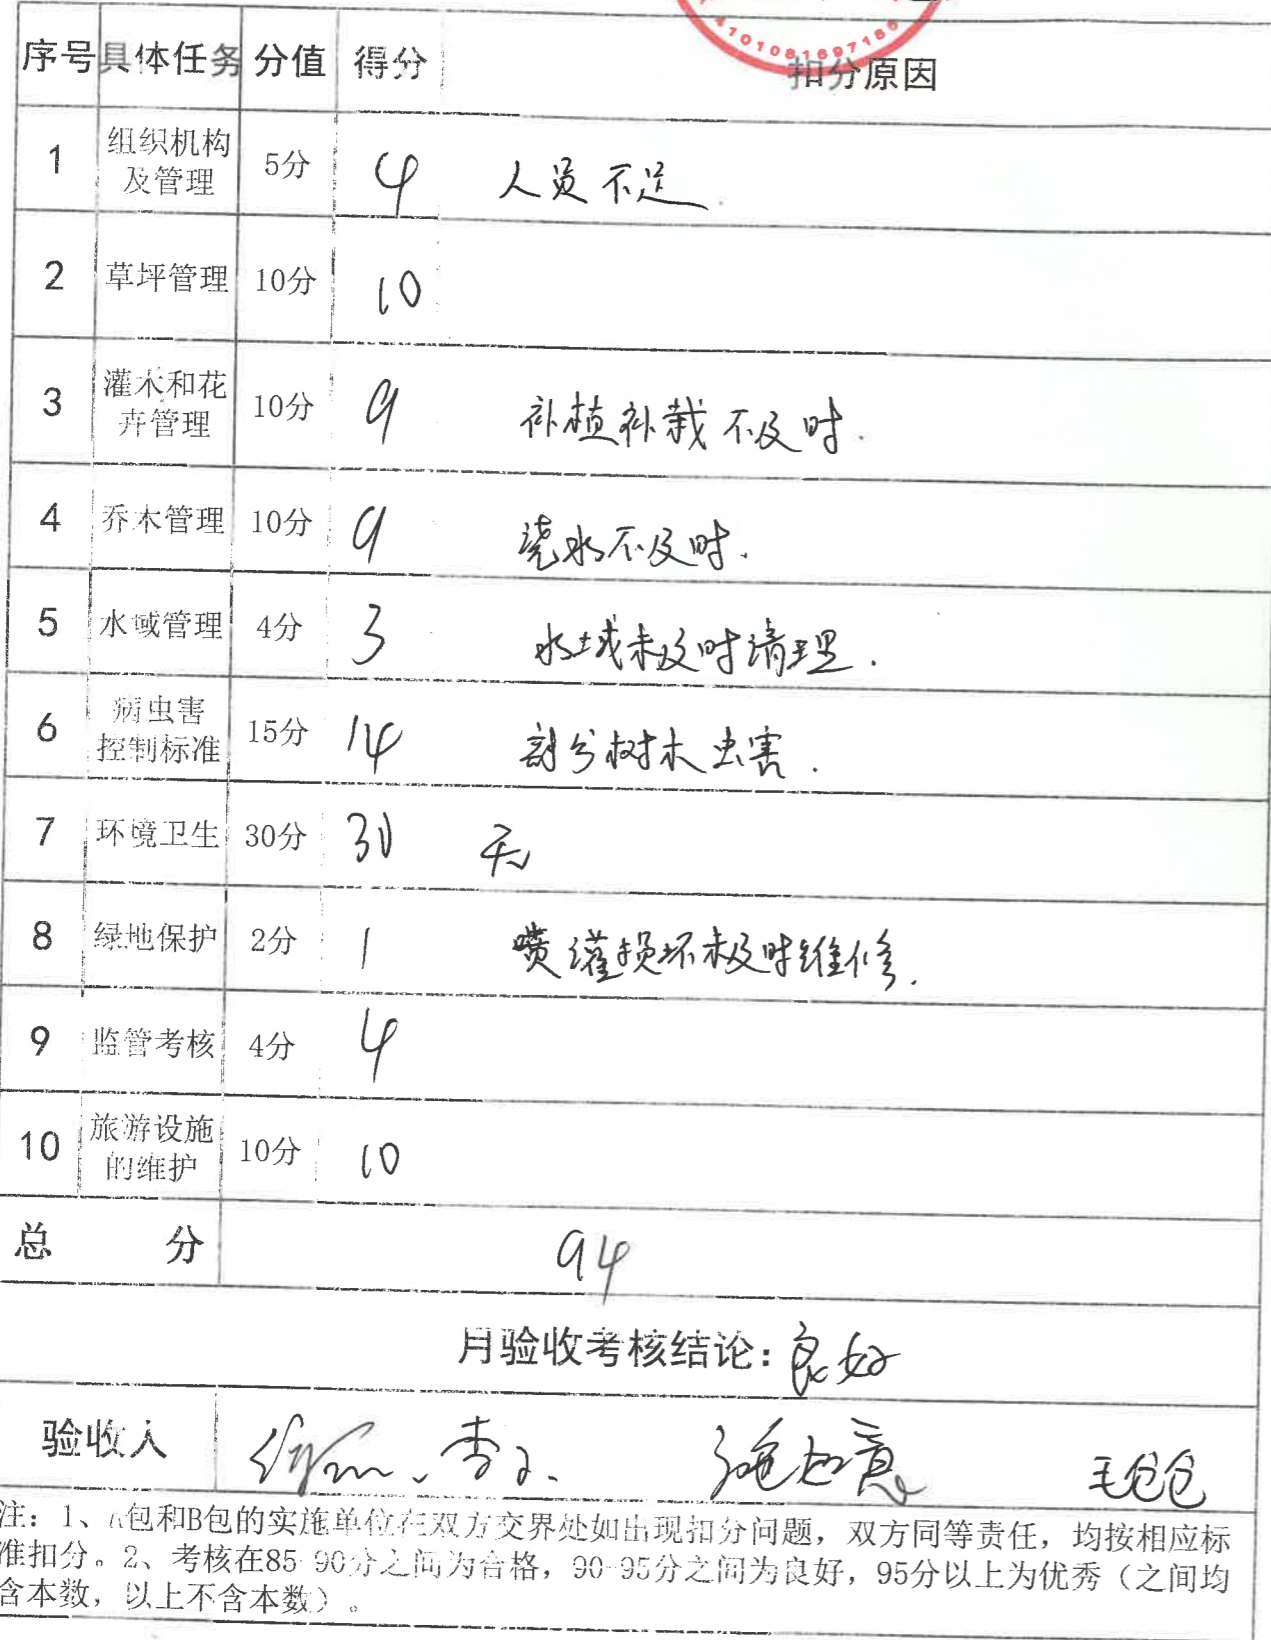 4101081697186
序号 具体任务 分值 得分 扣分原因
1 组织机构及管理 5分 4 人员不足
2 草坪管理 10分 10
3 灌木和花卉管理 10分 9 补植补栽不及时.
4 乔木管理 10分 9 浇水不及时.
5 水域管理 4分 3 水域未及时清理.
6 病虫害控制标准 15分 14 部分树木虫害.
7 环境卫生 30分 30 无
8 绿地保护 2分 1 喷灌损坏未及时维修.
9 监管考核 4分 4
10 旅游设施的维护 10分 10
总 分 94
月验收考核结论：良好
验收人
注：1、A包和B包的实施单位在双方交界处如出现扣分问题，双方同等责任，均按相应标
准扣分。2、考核在85-90分之间为合格，90-95分之间为良好，95分以上为优秀（之间均
含本数，以上不含本数）。